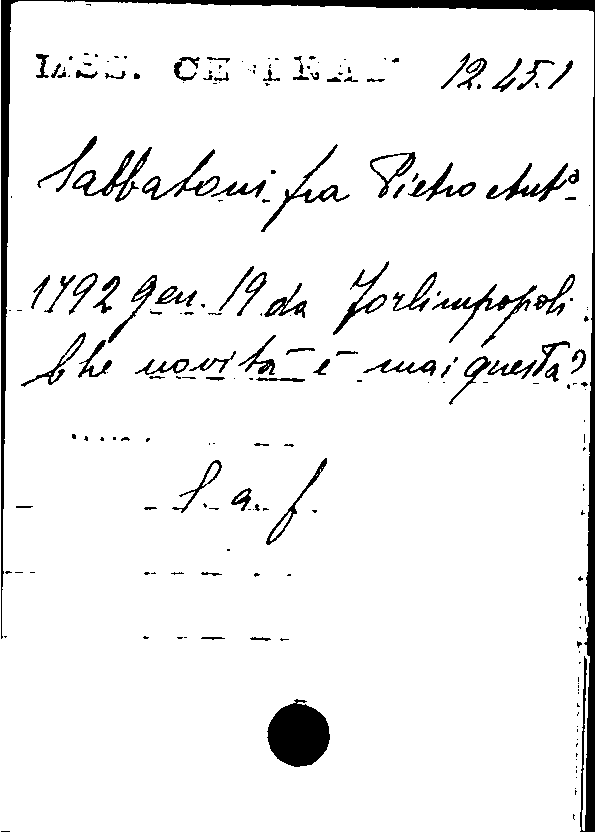 MSS. CENTRAL 12.45.1
Sabbatoni fra Pietro Antº
1792 gen. 19 da Forlimpopoli.
Che novità è mai questa?
......
S. a. f.